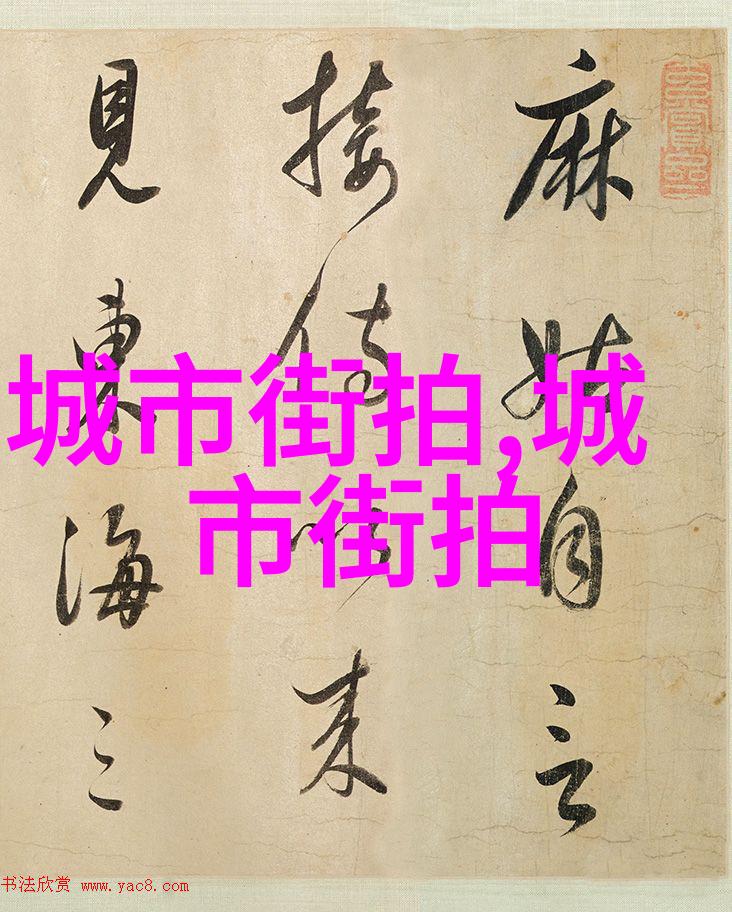 麻姑自言
接侍以来
見東海三
城市街拍,城
市街拍
书法欣赏 www.yac8.com